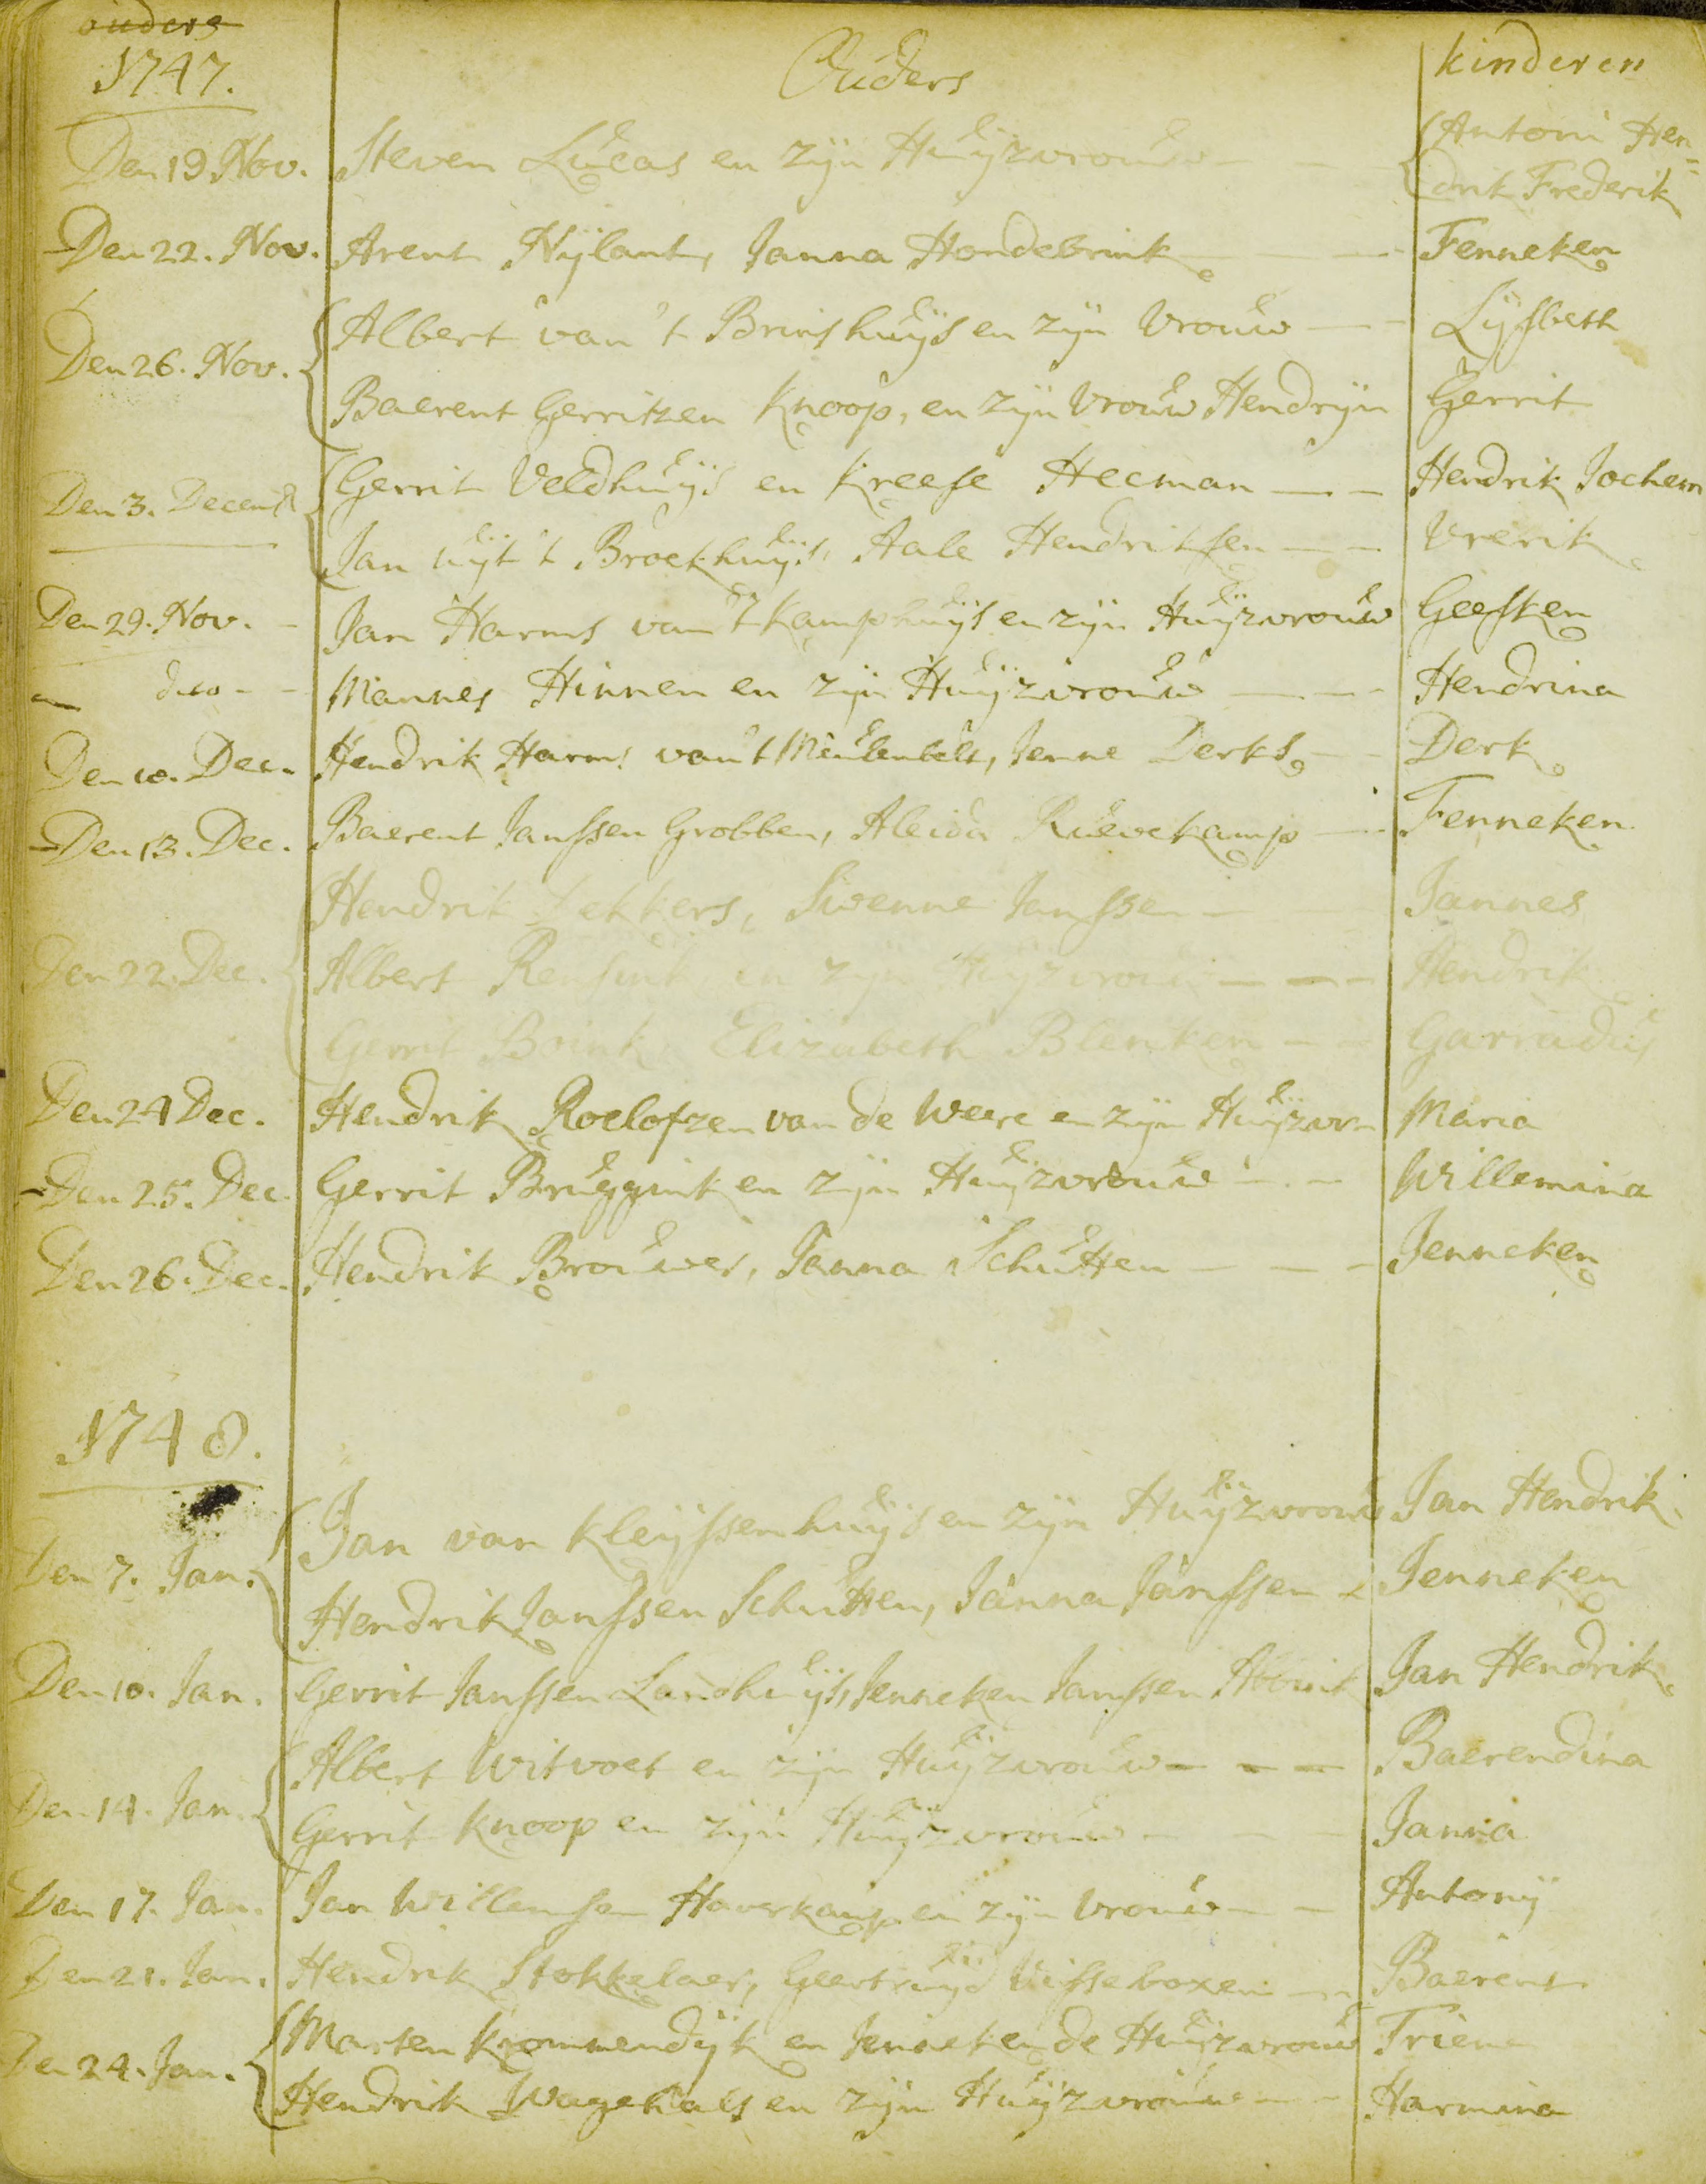 ouders
1747. Ouders kinderen
Den 19. Nov. Steven Lucas en zijn Huijzvrouw — — Antoni Hen=
drik Frederik
Den 22. Nov. Arent Nijlant, Janna Hondebrink — — Fenneken
Albert van 't Brinshuijs en zijn Vrouw — — Lijsbeth
Den 26. Nov.
Baerent Gerritzen Knoop, en zijn Vrouw Hendrijn Gerrit
Gerrit Veldhuijs en Kreese Heeman — — Hendrik Jochem
Den 3. Decemb
Jan uijt 't Broekhuijs, Aale Hendriksen — — Vrerik
Den 29. Nov. — Jan Harms van 't Kamphuijs en zijn Huijzvrouw Geesken
— dito — — Mannes Hinnen en zijn Huijzvrouw — — Hendrina
Den 10. Dec. Hendrik Harms van 't Meulenbelt, Jenne Derks — Derk
Den 13. Dec. Baerent Janssen Grobben, Aleida Ruevekamp — Fenneken
Hendrik Dekkers, Swenne Janssen — Jannes
Den 22. Dec. Albert Rensink en zijn Huijzvrouw — — — Hendrik
Gerrit Brink, Elizabeth Blenken — — Garradus
Den 24 Dec. Hendrik Roelofzen van de Weere en zijn Huijzvr Maria
Den 25. Dec. Gerrit Bruggink en zijn Huijzvrouw — — Willemina
Den 26. Dec. Hendrik Brouwer, Janna Schutten — — — Jenneken
1748.
Jan van Kleijssenhuijs en zijn Huijzvrouw Jan Hendrik
Den 7. Jan.
Hendrik Janssen Schutten, Janna Janssen — Jenneken
Den 10. Jan. Gerrit Janssen Landhuijs, Jenneken Janssen Abbink Jan Hendrik
Albert Witvoet en zijn Huijzvrouw — — — Baerendina
Den 14. Jan.
Gerrit Knoop en zijn Huijzvrouw — — — Janna
Den 17. Jan. Jan Willemsen Haverkamp en zijn Vrouw — — Antonij
Den 21. Jan. Hendrik Stokkelaer, Geertruijd — — Baerent
Marten Krommendijk en Jenneken de Huijzvrouw Triene
Den 24. Jan.
Hendrik Wagehals en zijn Huijzvrouw — — Harmina